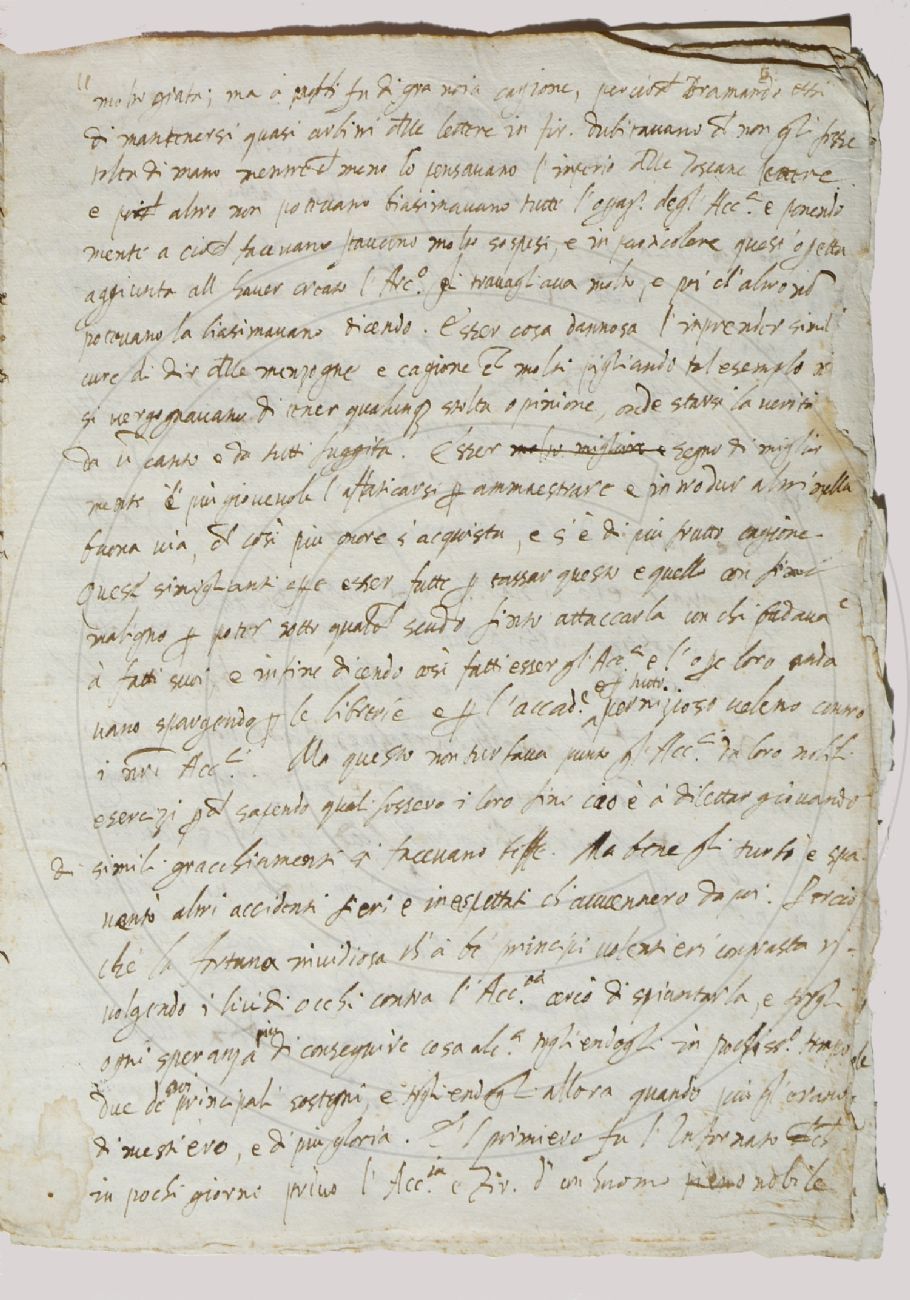 molto grata; ma à questi fu di gra noia cagione, percioche bramando essi
di mantenersi quasi arbitri delle lettere in Fir. dubitavano che non gli fosse
tolto di mano mentre che meno lo pensavano l'imperio delle Toscane lettere
e poiche altro non potevano biasimavano tutte l' degl' Acc.ci e ponendo
mente a ciò che facevano stavano molto sospesi, e in particolare quest'
aggiunta all haver creato l'Arc.o gli travagliava molto, e poi ch'altro no
potevano la biasimavano dicendo. Esser cosa dannosa l'inprender simil
cure di dir delle menzogne e cagione che molti pigliando tal esemplo no
si vergognavano di tener qualunq stolta opinione, onde starsi la verità
da u canto e da tutti fuggita. Esser molto migliore e segno di miglior
mente e più giovevole l'affaticarsi p ammaestrare e introdur altri nella
buona via, che così più onore s'acquista, e s'è di più frutto cagione.
Quest simiglianti esser tutte p tassar questo e quello con fine
maligno p poter sotto qualche scudo finto attaccarla con chi badava
à fatti suoi, e infine dicendo così fatti esser gl'Acc.ci e l' loro anda
vano spargendo p le librerie e p l'accad.e e p tutto pernizioso veleno contro
i nri Acc.ci. Ma questo non turbava punto gl'Acc.ci da loro nobili
esercizi pche sapendo quali fossero i loro fini cioè à dilettar giovando
di simili gracchiamenti si facevano beffe. Ma bene gli turbò e spa
ventò altri accidenti fieri e inespettati ch'avvennero da poi. Percio
che la fortuna invidiosa ch'à be principi volentieri contrasta ri-
volgendo i lividi occhi contra l'Acc.a cercò di spiantarla, e torgli
ogni speranza più di conseguire cosa alc.a togliendogli in pochiss.o tempo
due de suoi principali sostegni, e togliendogli allora quando più gl'erano
di mestiero, e di più gloria. E l primiero fu l'Infornato che
in pochi giorni privò l'Acc.ia e Fir. d'un huomo pieno nobile